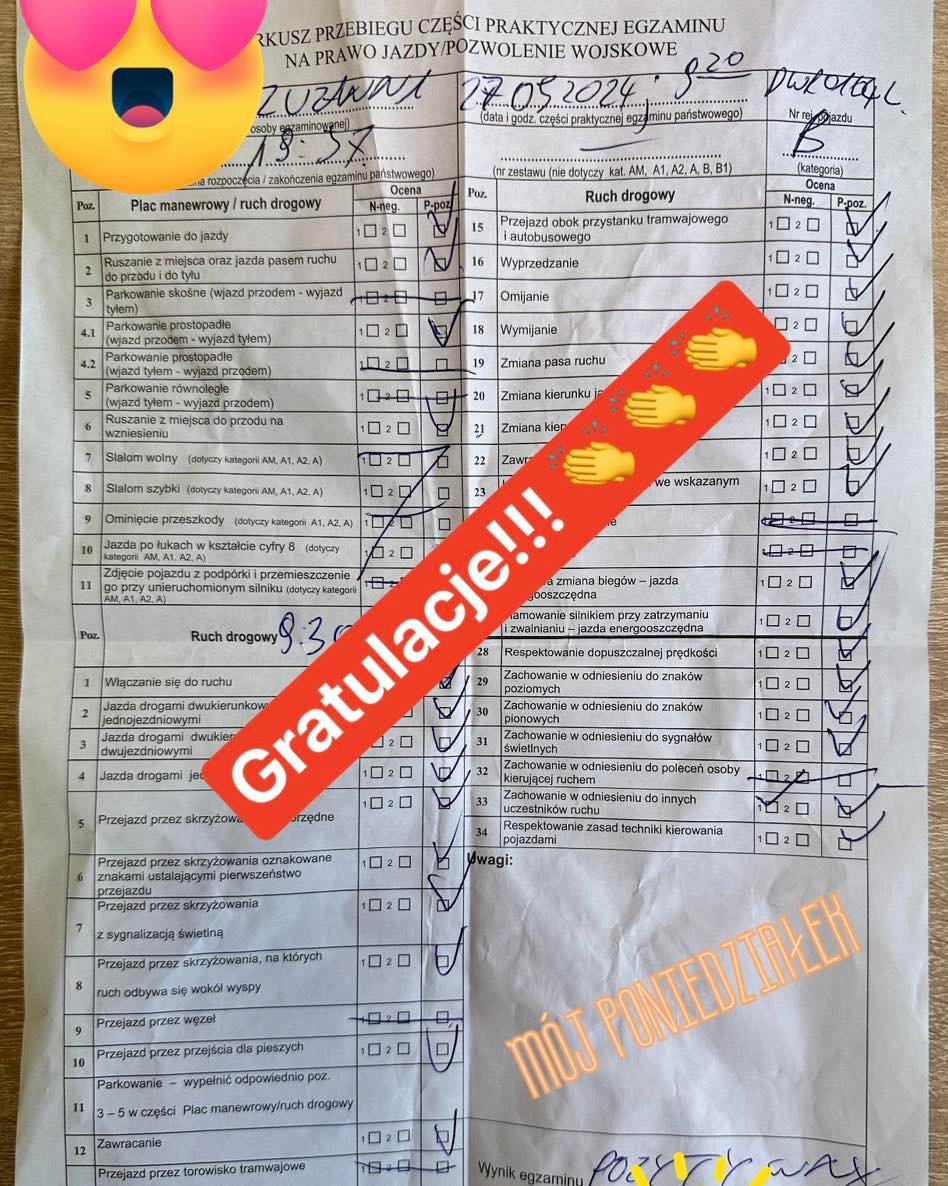 RKUSZ PRZEBIEGU CZĘŚCI PRAKTYCZNEJ EGZAMINU
NA PRAWO JAZDY/POZWOLENIE WOJSKOWE
27 09 2024, 9 20
osoby egzaminowanej)
(data i godz. części praktycznej egzaminu państwowego)
Nr rej. pojazdu
B
na rozpoczęcia / zakończenia egzaminu państwowego)
(nr zestawu (nie dotyczy kat. AM, A1, A2, A, B, B1)
(kategoria)
Poz. Plac manewrowy / ruch drogowy Ocena
N-neg. P-poz.
1 Przygotowanie do jazdy 1 2
2 Ruszanie z miejsca oraz jazda pasem ruchu
do przodu i do tyłu 1 2
3 Parkowanie skośne (wjazd przodem - wyjazd
tyłem) 1 2
4.1 Parkowanie prostopadłe
(wjazd przodem - wyjazd tyłem) 1 2
4.2 Parkowanie prostopadłe
(wjazd tyłem - wyjazd przodem) 1 2
5 Parkowanie równoległe
(wjazd tyłem - wyjazd przodem) 1 2
6 Ruszanie z miejsca do przodu na
wzniesieniu 1 2
7 Slalom wolny (dotyczy kategorii AM, A1, A2, A) 1 2
8 Slalom szybki (dotyczy kategorii AM, A1, A2, A) 1 2
9 Ominięcie przeszkody (dotyczy kategorii A1, A2, A) 1 2
10 Jazda po łukach w kształcie cyfry 8 (dotyczy
kategorii AM, A1, A2, A) 1 2
11 Zdjęcie pojazdu z podpórki i przemieszczenie
go przy unieruchomionym silniku (dotyczy kategorii
AM, A1, A2, A) 1 2
Poz. Ruch drogowy
1 Włączanie się do ruchu
2 Jazda drogami dwukierunkow
jednojezdniowymi 2
3 Jazda drogami dwukier
dwujezdniowymi 2
4 Jazda drogami jed 1 2
5 Przejazd przez skrzyżowa orzędne 1 2
6 Przejazd przez skrzyżowania oznakowane
znakami ustalającymi pierwszeństwo
przejazdu 1 2
7 Przejazd przez skrzyżowania
z sygnalizacją świetlną 1 2
8 Przejazd przez skrzyżowania, na których
ruch odbywa się wokół wyspy 1 2
9 Przejazd przez węzeł 1 2
10 Przejazd przez przejścia dla pieszych 1 2
11 Parkowanie – wypełnić odpowiednio poz.
3 – 5 w części Plac manewrowy/ruch drogowy
12 Zawracanie 1 2
Przejazd przez torowisko tramwajowe 1 2
Poz. Ruch drogowy Ocena
N-neg. P-poz.
15 Przejazd obok przystanku tramwajowego
i autobusowego 1 2
16 Wyprzedzanie 1 2
17 Omijanie 1 2
18 Wymijanie 2
19 Zmiana pasa ruchu 2
20 Zmiana kierunku ja 1 2
21 Zmiana kier 1 2
22 Zawr 1 2
23 we wskazanym 1 2
ie 1 2
1 2
a zmiana biegów – jazda
gooszczędna 1 2
hamowanie silnikiem przy zatrzymaniu
i zwalnianiu – jazda energooszczędna 1 2
28 Respektowanie dopuszczalnej prędkości 1 2
29 Zachowanie w odniesieniu do znaków
poziomych 1 2
30 Zachowanie w odniesieniu do znaków
pionowych 1 2
31 Zachowanie w odniesieniu do sygnałów
świetlnych 1 2
32 Zachowanie w odniesieniu do poleceń osoby
kierującej ruchem 1 2
33 Zachowanie w odniesieniu do innych
uczestników ruchu 1 2
34 Respektowanie zasad techniki kierowania
pojazdami 1 2
Uwagi:
Gratulacje!!!
MÓJ PONIEDZIAŁEK
Wynik egzaminu POZYTYWNY